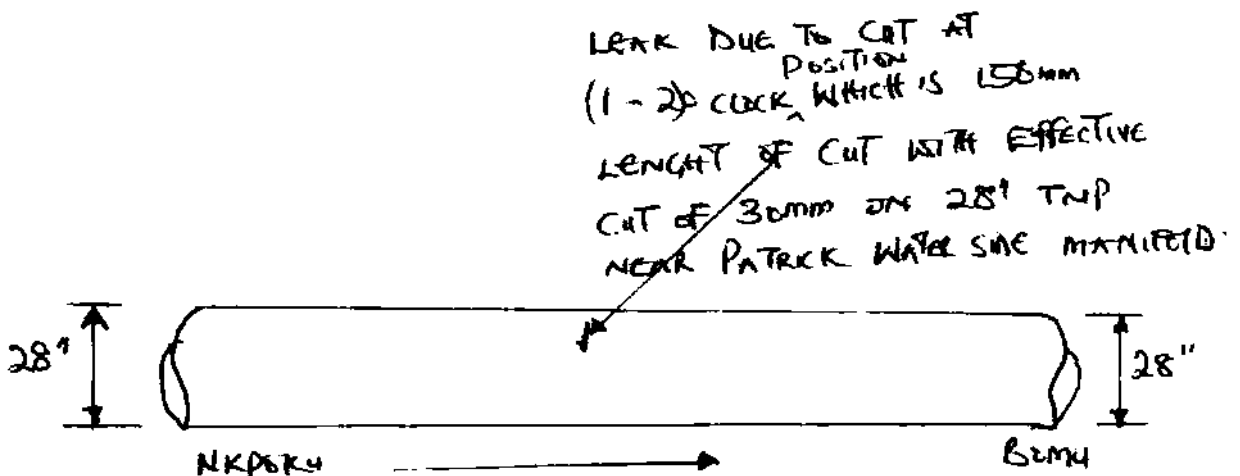 LEAK DUE TO CUT AT
POSITION
(1 - 2)O CLOCK ^ WHICH IS 150mm
LENGHT OF CUT WITH EFFECTIVE
CUT OF 30mm ON 28" TNP
NEAR PATRICK WATER SIDE MANIFOLD.
28"
28"
NKPOKU
BOMU